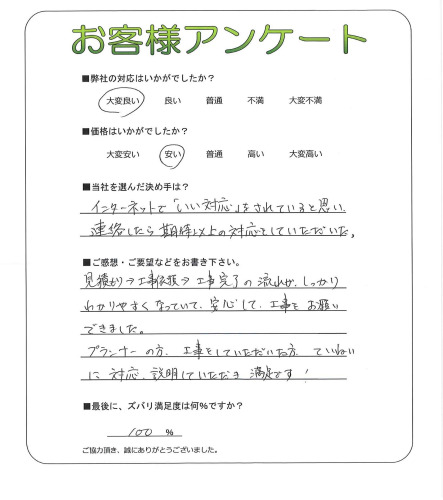 お客様アンケート
■弊社の対応はいかがでしたか？
大変良い 良い 普通 不満 大変不満
■価格はいかがでしたか？
大変安い 安い 普通 高い 大変高い
■当社を選んだ決め手は？
インターネットで「いい対応」をされていると思い、
連絡したら期待以上の対応をしていただいた。
■ご感想・ご要望などをお書き下さい。
見積り→工事依頼→工事完了の流れが、しっかり
わかりやすくなっていて、安心して、工事をお願い
できました。
プランナーの方、工事をしていただいた方、ていねい
に対応、説明していただき満足です！
■最後に、ズバリ満足度は何%ですか？
100 %
ご協力頂き、誠にありがとうございました。